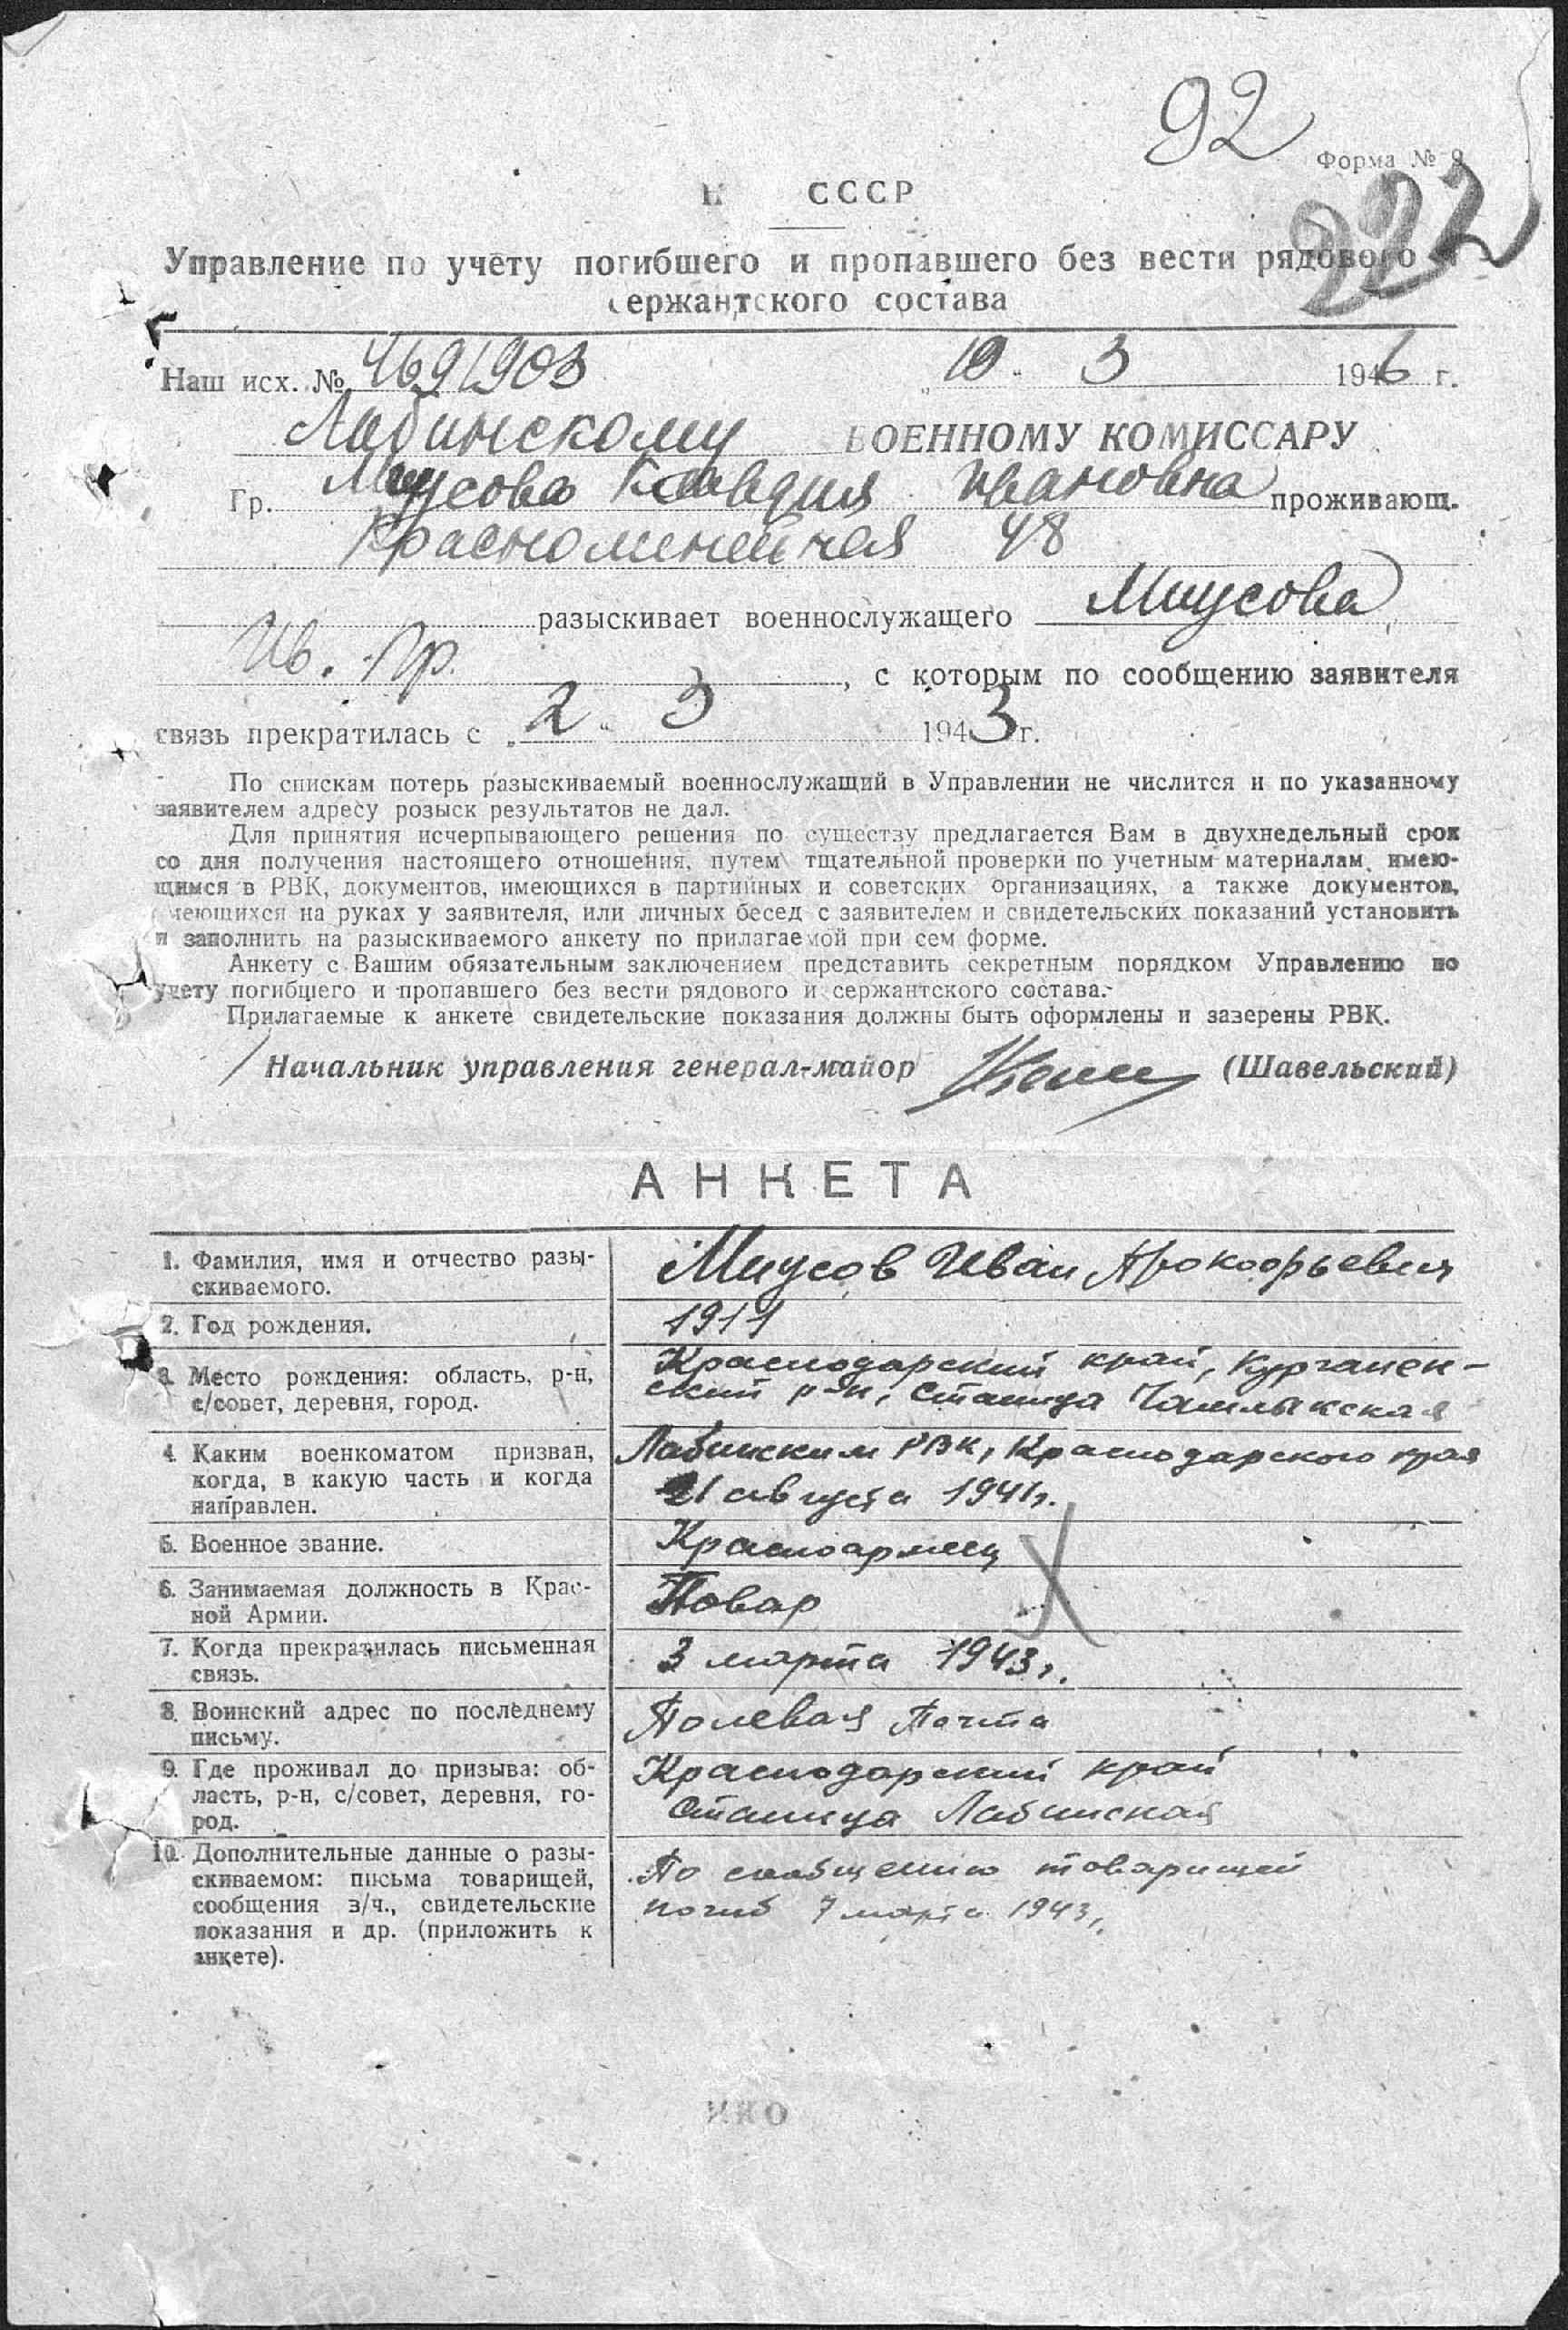 92
Форма № 9
222
Н СССР
Управление по учёту погибшего и пропавшего без вести рядового и
сержантского состава
Наш исх. № 4691903 „19 " 3 1946 г.
Лабинскому ВОЕННОМУ КОМИССАРУ
Гр. Миусова Клавдия Ивановна проживающ.
Краснолинейная 48
разыскивает военнослужащего Миусова
Ив. Пр. , с которым по сообщению заявителя
связь прекратилась с „ 2 " 3 1943 г.
По спискам потерь разыскиваемый военнослужащий в Управлении не числится и по указанному
заявителем адресу розыск результатов не дал.
Для принятия исчерпывающего решения по существу предлагается Вам в двухнедельный срок
со дня получения настоящего отношения, путем тщательной проверки по учетным материалам, имею-
щимся в РВК, документов, имеющихся в партийных и советских организациях, а также документов,
имеющихся на руках у заявителя, или личных бесед с заявителем и свидетельских показаний установить
и заполнить на разыскиваемого анкету по прилагаемой при сем форме.
Анкету с Вашим обязательным заключением представить секретным порядком Управлению по
учету погибщего и пропавшего без вести рядового и сержантского состава.
Прилагаемые к анкете свидетельские показания должны быть оформлены и заверены РВК.
Начальник управления генерал-майор (Шавельский)
АНКЕТА
1. Фамилия, имя и отчество разы-
скиваемого.
Миусов Иван Прокофьевич
2. Год рождения.
1911
3. Место рождения: область, р-н,
с/совет, деревня, город.
Краснодарский край, Курганен-
ский р-он, станица Чамлыкская
4. Каким военкоматом призван,
когда, в какую часть и когда
направлен.
Лабинским РВК, Краснодарского края
21 августа 1941 г.
5. Военное звание.
Красноармеец
6. Занимаемая должность в Крас-
ной Армии.
Повар
7. Когда прекратилась письменная
связь.
3 марта 1943 г.
8. Воинский адрес по последнему
письму.
Полевая Почта
9. Где проживал до призыва: об-
ласть, р-н, с/совет, деревня, го-
род.
Краснодарский край
станица Лабинская
10. Дополнительные данные о разы-
скиваемом: письма товарищей,
сообщения з/ч., свидетельские
показания и др. (приложить к
анкете).
По сообщению товарищей
погиб 7 марта 1943 г.